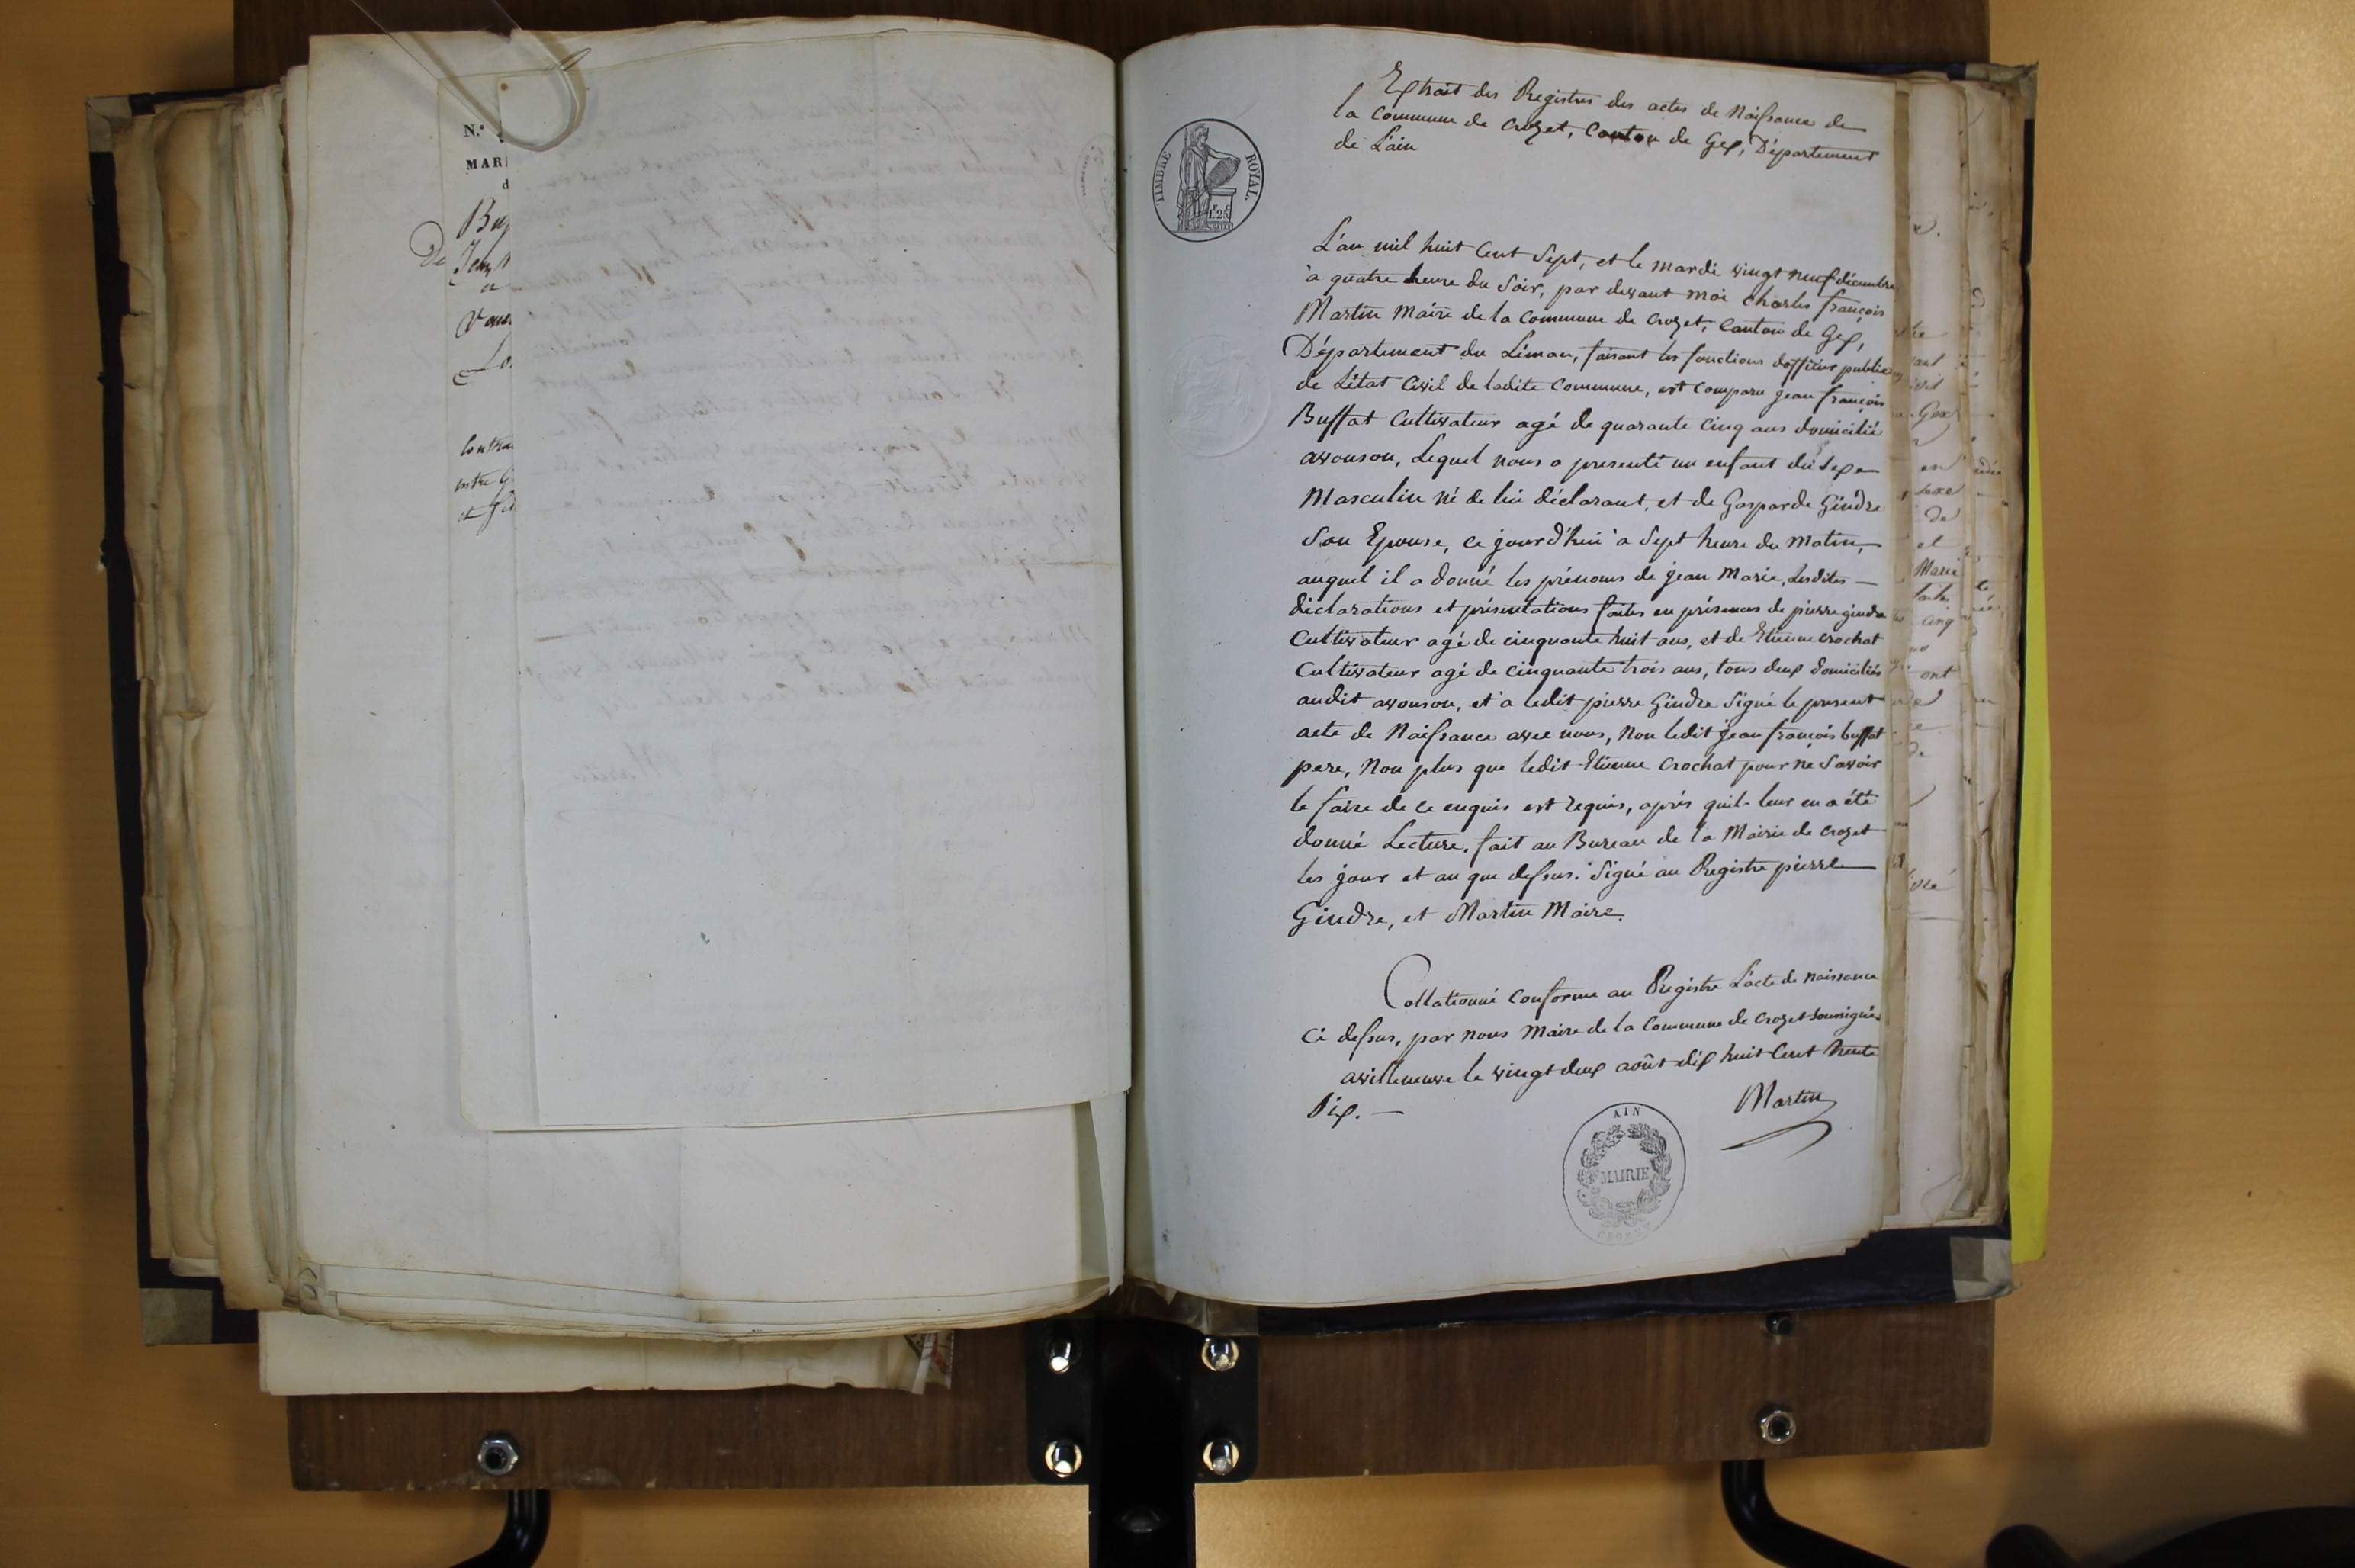 N.º
MAR
d
Buf
De Jean
et
Contra
entre G
TIMBRE ROYAL.
1.f 25.c
Extrait des Registres des actes de Naissance de
la Commune de Crozet, Canton de Gex, Département
de L'ain
L'an mil huit Cent Sept, et le mardi vingt neuf décembre
à quatre heure du Soir, par devant moi Charles françois
Martin Maire de la Commune de Crozet, Canton de Gex,
Département du Léman, faisant les fonctions dofficier public
de L'état Civil de ladite Commune, est Comparu jean françois
Buffat Cultivateur agé de quarante Cinq ans domicilié
avouson, Lequel nous a presenté un enfant du Sexe
Masculin né de lui déclarant, et de Gasparde Gindre
Son Epouse, ce jourd'hui à Sept heure du Matin,
auquel il a donné les prénoms de jean Marie, Lesdites
déclarations et présentations faites en présences de pierre gindre
Cultivateur agé de cinquante huit ans, et de Etienne crochat
Cultivateur agé de Cinquante trois ans, tous deux domiciliés
audit avouson, et à ledit pierre Gindre Signé le present
acte de Naissance avec nous, Non ledit jean françois buffat
pere, Non plus que ledit Etienne Crochat pour ne Savoir
le faire de ce enquis est requis, après quil leur en a été
donné Lecture, fait au Bureau de la Mairie de Crozet
les jour et an que dessus. Signé au Registre pierre
Gindre, et Martin Maire.
Collationné Conforme au Régistre L'acte de naissance
Ci dessus, par Nous Maire de la Commune de Crozet Soussigné
avilleneuve le vingt deux août dix huit Cent trente
Six.
Martin
AIN
MAIRIE